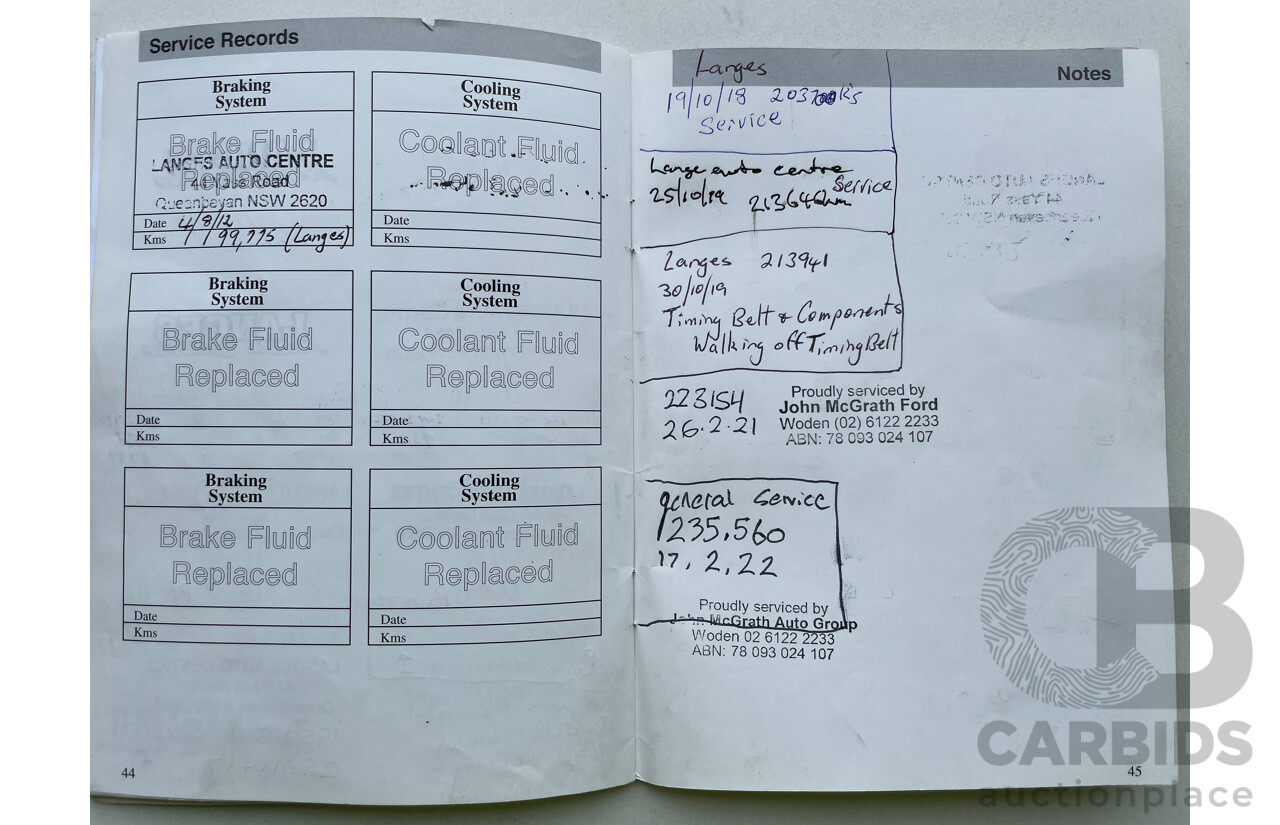 Service Records
Braking
System
Brake Fluid
Replaced
LANGES AUTO CENTRE
Road
Queanbeyan NSW 2620
Date 4/8/12
Kms 99,775 (Langes)
Cooling
System
Coolant Fluid
Replaced
Date
Kms
Braking
System
Brake Fluid
Replaced
Date
Kms
Cooling
System
Coolant Fluid
Replaced
Date
Kms
Braking
System
Brake Fluid
Replaced
Date
Kms
Cooling
System
Coolant Fluid
Replaced
Date
Kms
44
Notes
Langes
19/10/18
Service
Lange auto centre
Service
25/10/19 213646km
Langes 213941
30/10/19
Timing Belt & Components
Walking off Timing Belt
223154
26.2.21
Proudly serviced by
John McGrath Ford
Woden (02) 6122 2233
ABN: 78 093 024 107
general Service
235,560
17.2.22
Proudly serviced by
John McGrath Auto Group
Woden 02 6122 2233
ABN: 78 093 024 107
45
CB
CARBIDS
auctionplace